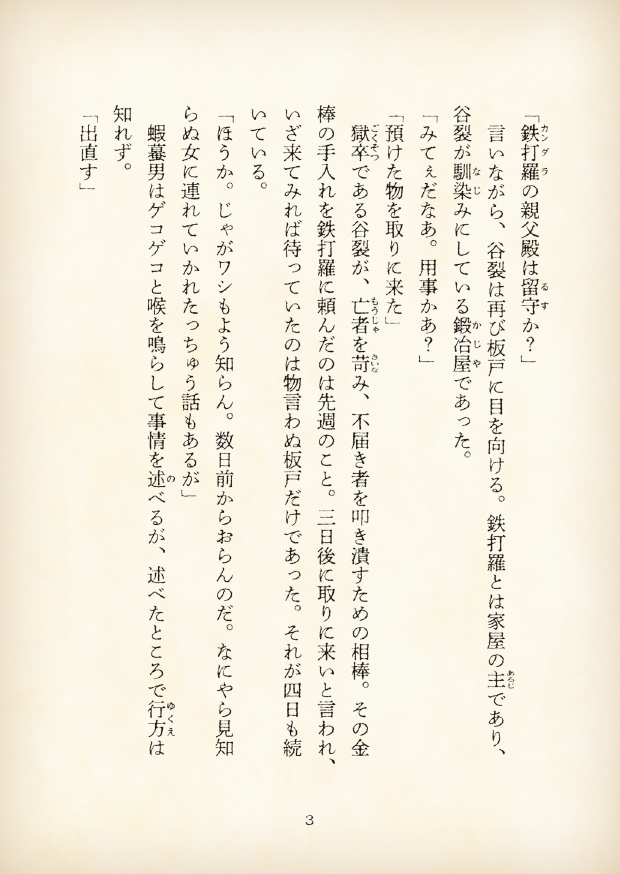 「鉄打羅の親父殿は留守か？」
言いながら、谷裂は再び板戸に目を向ける。鉄打羅とは家屋の主であり、
谷裂が馴染みにしている鍛冶屋であった。
「みてぇだなあ。用事かあ？」
「預けた物を取りに来た」
獄卒である谷裂が、亡者を苛み、不届き者を叩き潰すための相棒。その金
棒の手入れを鉄打羅に頼んだのは先週のこと。三日後に取りに来いと言われ、
いざ来てみれば待っていたのは物言わぬ板戸だけであった。それが四日も続
いている。
「ほうか。じゃがワシもよう知らん。数日前からおらんのだ。なにやら見知
らぬ女に連れていかれたっちゅう話もあるが」
蝦蟇男はゲコゲコと喉を鳴らして事情を述べるが、述べたところで行方は
知れず。
「出直す」
3